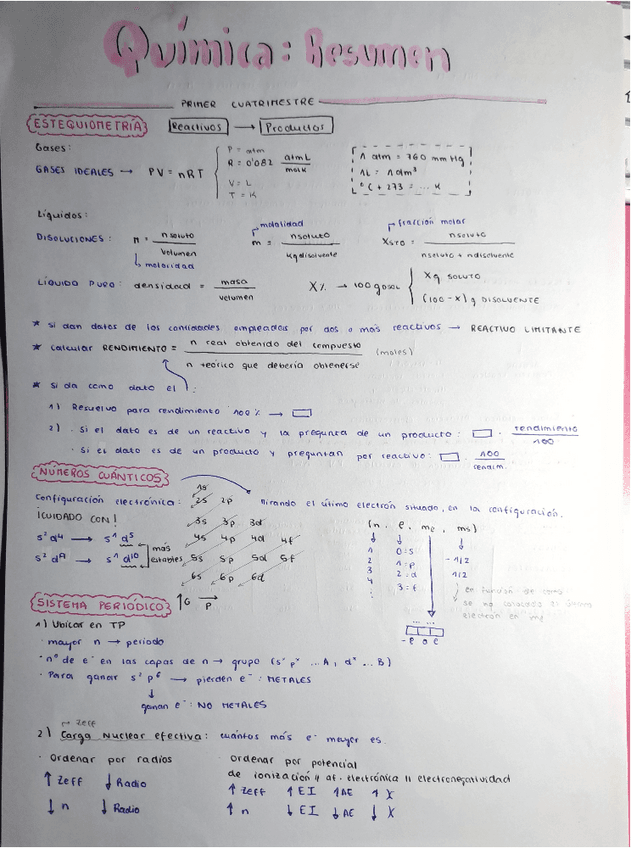 Química: Resumen
PRIMER CUATRIMESTRE
ESTEQUIOMETRÍA Reactivos → Productos
Gases:
GASES IDEALES → PV = nRT
P = atm
R = 0'082 atmL / molK
V = L
T = K
1 atm = 760 mm Hg
1L = 1 dm³
°C + 273 = ... K
Líquidos:
molalidad
fracción molar
DISOLUCIONES: n = n soluto / volumen
m = n soluto / kg disolvente
X sto = n soluto / n soluto + n disolvente
molaridad
LÍQUIDO PURO: densidad = masa / volumen
X% → 100 g DSOL
X g SOLUTO
(100 - X) g DISOLVENTE
* Si dan datos de las cantidades empleadas por dos o más reactivos → REACTIVO LIMITANTE
* Calcular RENDIMIENTO = n real obtenido del compuesto / n teórico que debería obtenerse (moles)
* Si da como dato el :
1) Resuelvo para rendimiento 100% →
2) · Si el dato es de un reactivo y la pregunta de un producto: · rendimiento / 100
· Si el dato es de un producto y preguntan por reactivo: · 100 / rendim.
NÚMEROS CUÁNTICOS
Configuración electrónica:
1s
2s 2p
3s 3p 3d
4s 4p 4d 4f
5s 5p 5d 5f
6s 6p 6d
mirando el último electrón situado, en la configuración.
¡CUIDADO CON!
s² d⁴ → s¹ d⁵
s² d⁹ → s¹ d¹⁰
más estables
(n, l, ml, ms)
1 0=s -1/2
2 1=p 1/2
3 2=d
4 3=f
en función de como
se ha colocado el último
electrón en ml
-l 0 l
SISTEMA PERIÓDICO ↑G P →
1) Ubicar en TP
· mayor n → período
· nº de e⁻ en las capas de n → grupo (s² pˣ ... A, dˣ ... B)
· Para ganar s² p⁶ → pierden e⁻: METALES
↓
ganan e⁻: NO METALES
Zeff
2) Carga Nuclear efectiva: cuántos más e⁻ mayor es.
· Ordenar por radios
↑ Zeff ↓ Radio
↓ n ↓ Radio
· Ordenar por potencial
de ionización y af. electrónica y electronegatividad
↑ Zeff ↑ EI ↑ AE ↑ X
↑ n ↓ EI ↓ AE ↓ X